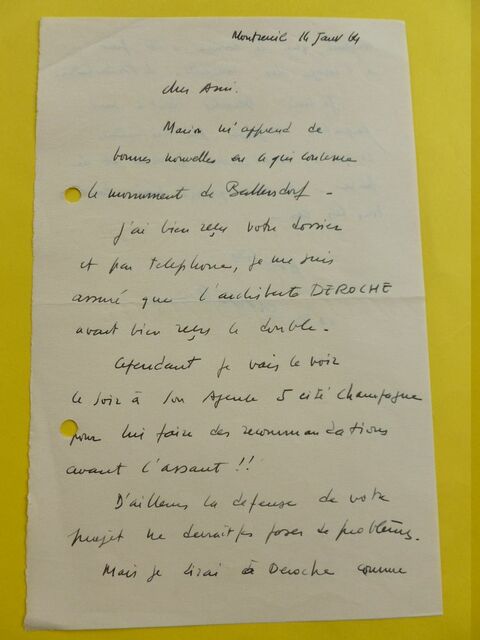 Montreuil 14 Janv 64
cher Ami.
Marion m'apprend de
bonnes nouvelles en ce qui concerne
le monument de Ballersdorf -
j'ai bien reçu votre dossier
et par telephone, je me suis
assuré que l'architecte DEROCHE
avait bien reçu le double -
Cependant je vais le voir
ce soir à son Agence 5 cité Champagne
pour lui faire des recommandations
avant l'assaut !!
D'ailleurs la defense de votre
projet ne devrait pas poser de problèmes.
Mais je dirai à Deroche comme